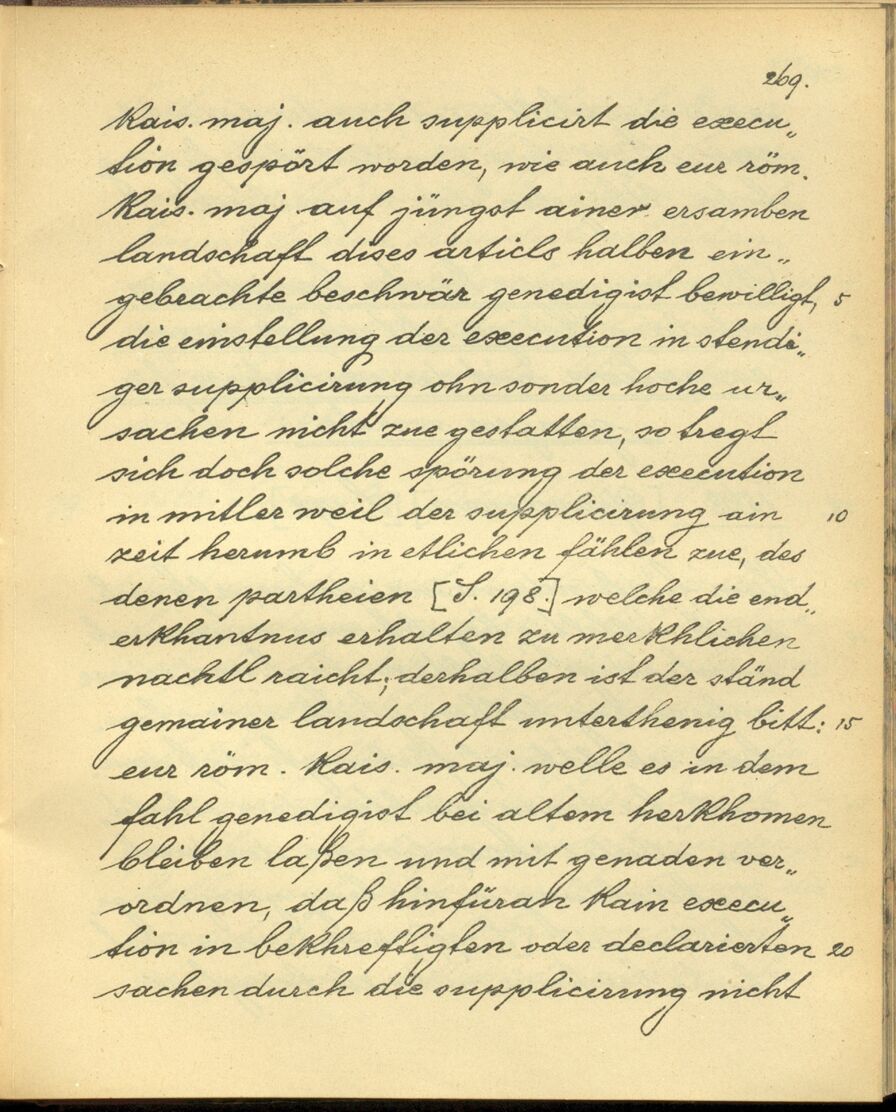 269.
Kais. maj. auch supplicirt die execu„
tion gespört worden, wie auch eur röm.
Kais. maj auf jüngst ainer ersamben
landschaft dises articls halben ein„
gebrachte beschwär genedigist bewilligt, 5
die einstellung der execution in stendi„
ger supplicirung ohn sonder hoche ur„
sachen nicht zue gestatten, so tregt
sich doch solche spörung der execution
in mitler weil der supplicirung ain 10
zeit herumb in etlichen fählen zue, des
denen partheien [S. 198.] welche die end„
erkhantnus erhalten zu merkhlichen
nachtl raicht; derhalben ist der ständ
gemainer landschaft unterthenig bitt: 15
eur röm. Kais. maj. welle es in dem
fahl genedigist bei altem herkhomen
bleiben laßen und mit genaden ver„
ordnen, daß hinfüran kain execu„
tion in bekhreftigten oder declarierten 20
sachen durch die supplicirung nicht